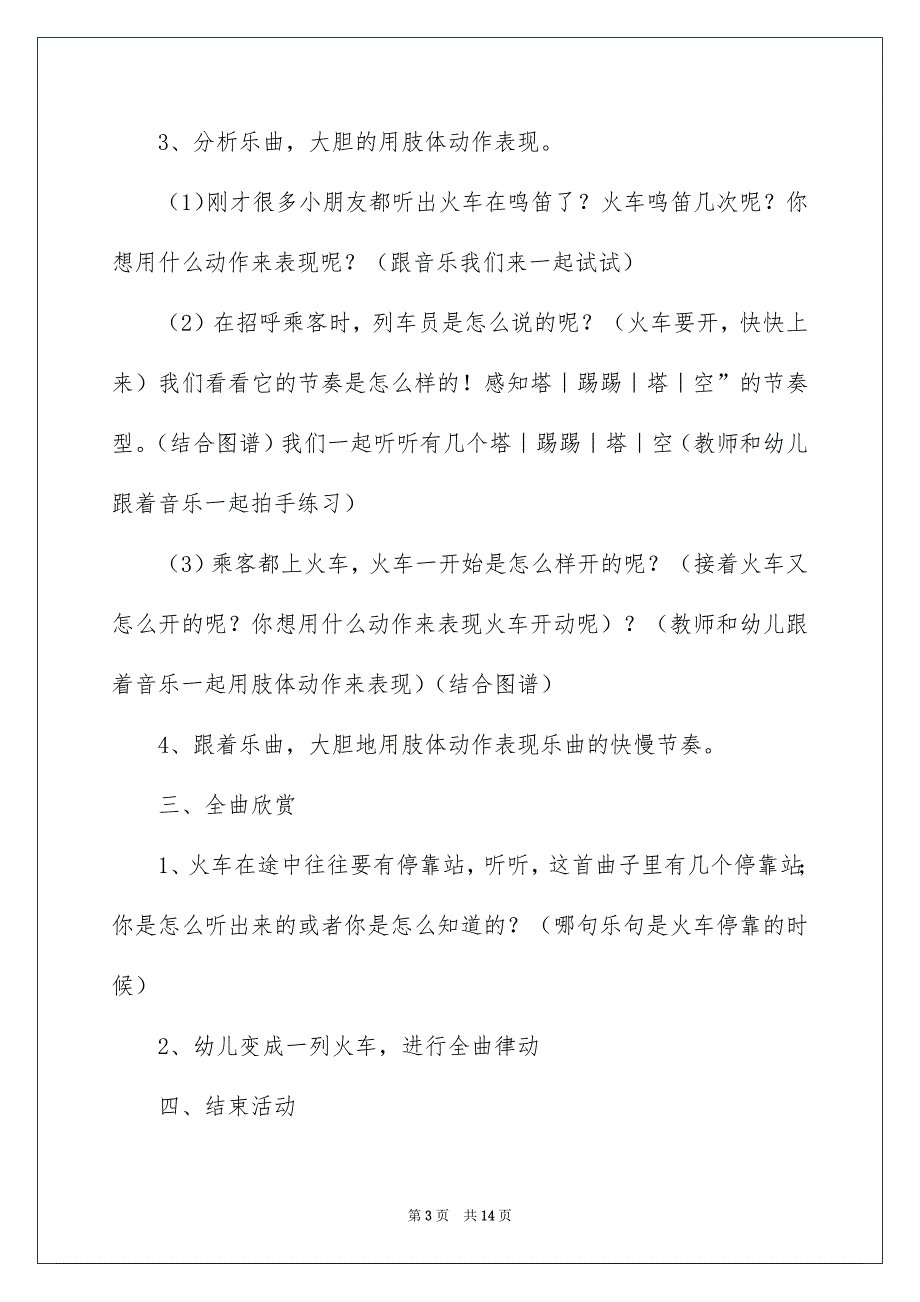 3、分析乐曲，大胆的用肢体动作表现。
（1)刚才很多小朋友都听出火车在鸣笛了？火车鸣笛几次呢？你
想用什么动作来表现呢？（跟音乐我们来一起试试）
（2）在招呼乘客时，列车员是怎么说的呢？（火车要开，快快上
来）我们看看它的节奏是怎么样的！感知塔｜踢踢｜塔｜空”的节奏
型。（结合图谱）我们一起听听有几个塔｜踢踢｜塔｜空（教师和幼儿
跟着音乐一起拍手练习）
（3）乘客都上火车，火车一开始是怎么样开的呢？（接着火车又
怎么开的呢？你想用什么动作来表现火车开动呢）？（教师和幼儿跟
着音乐一起用肢体动作来表现）（结合图谱）
4、跟着乐曲，大胆地用肢体动作表现乐曲的快慢节奏。
三、全曲欣赏
1、火车在途中往往要有停靠站，听听，这首曲子里有几个停靠站；
你是怎么听出来的或者你是怎么知道的？（哪句乐句是火车停靠的时
候）
2、幼儿变成一列火车，进行全曲律动
四、结束活动
第 3 页 共 14 页